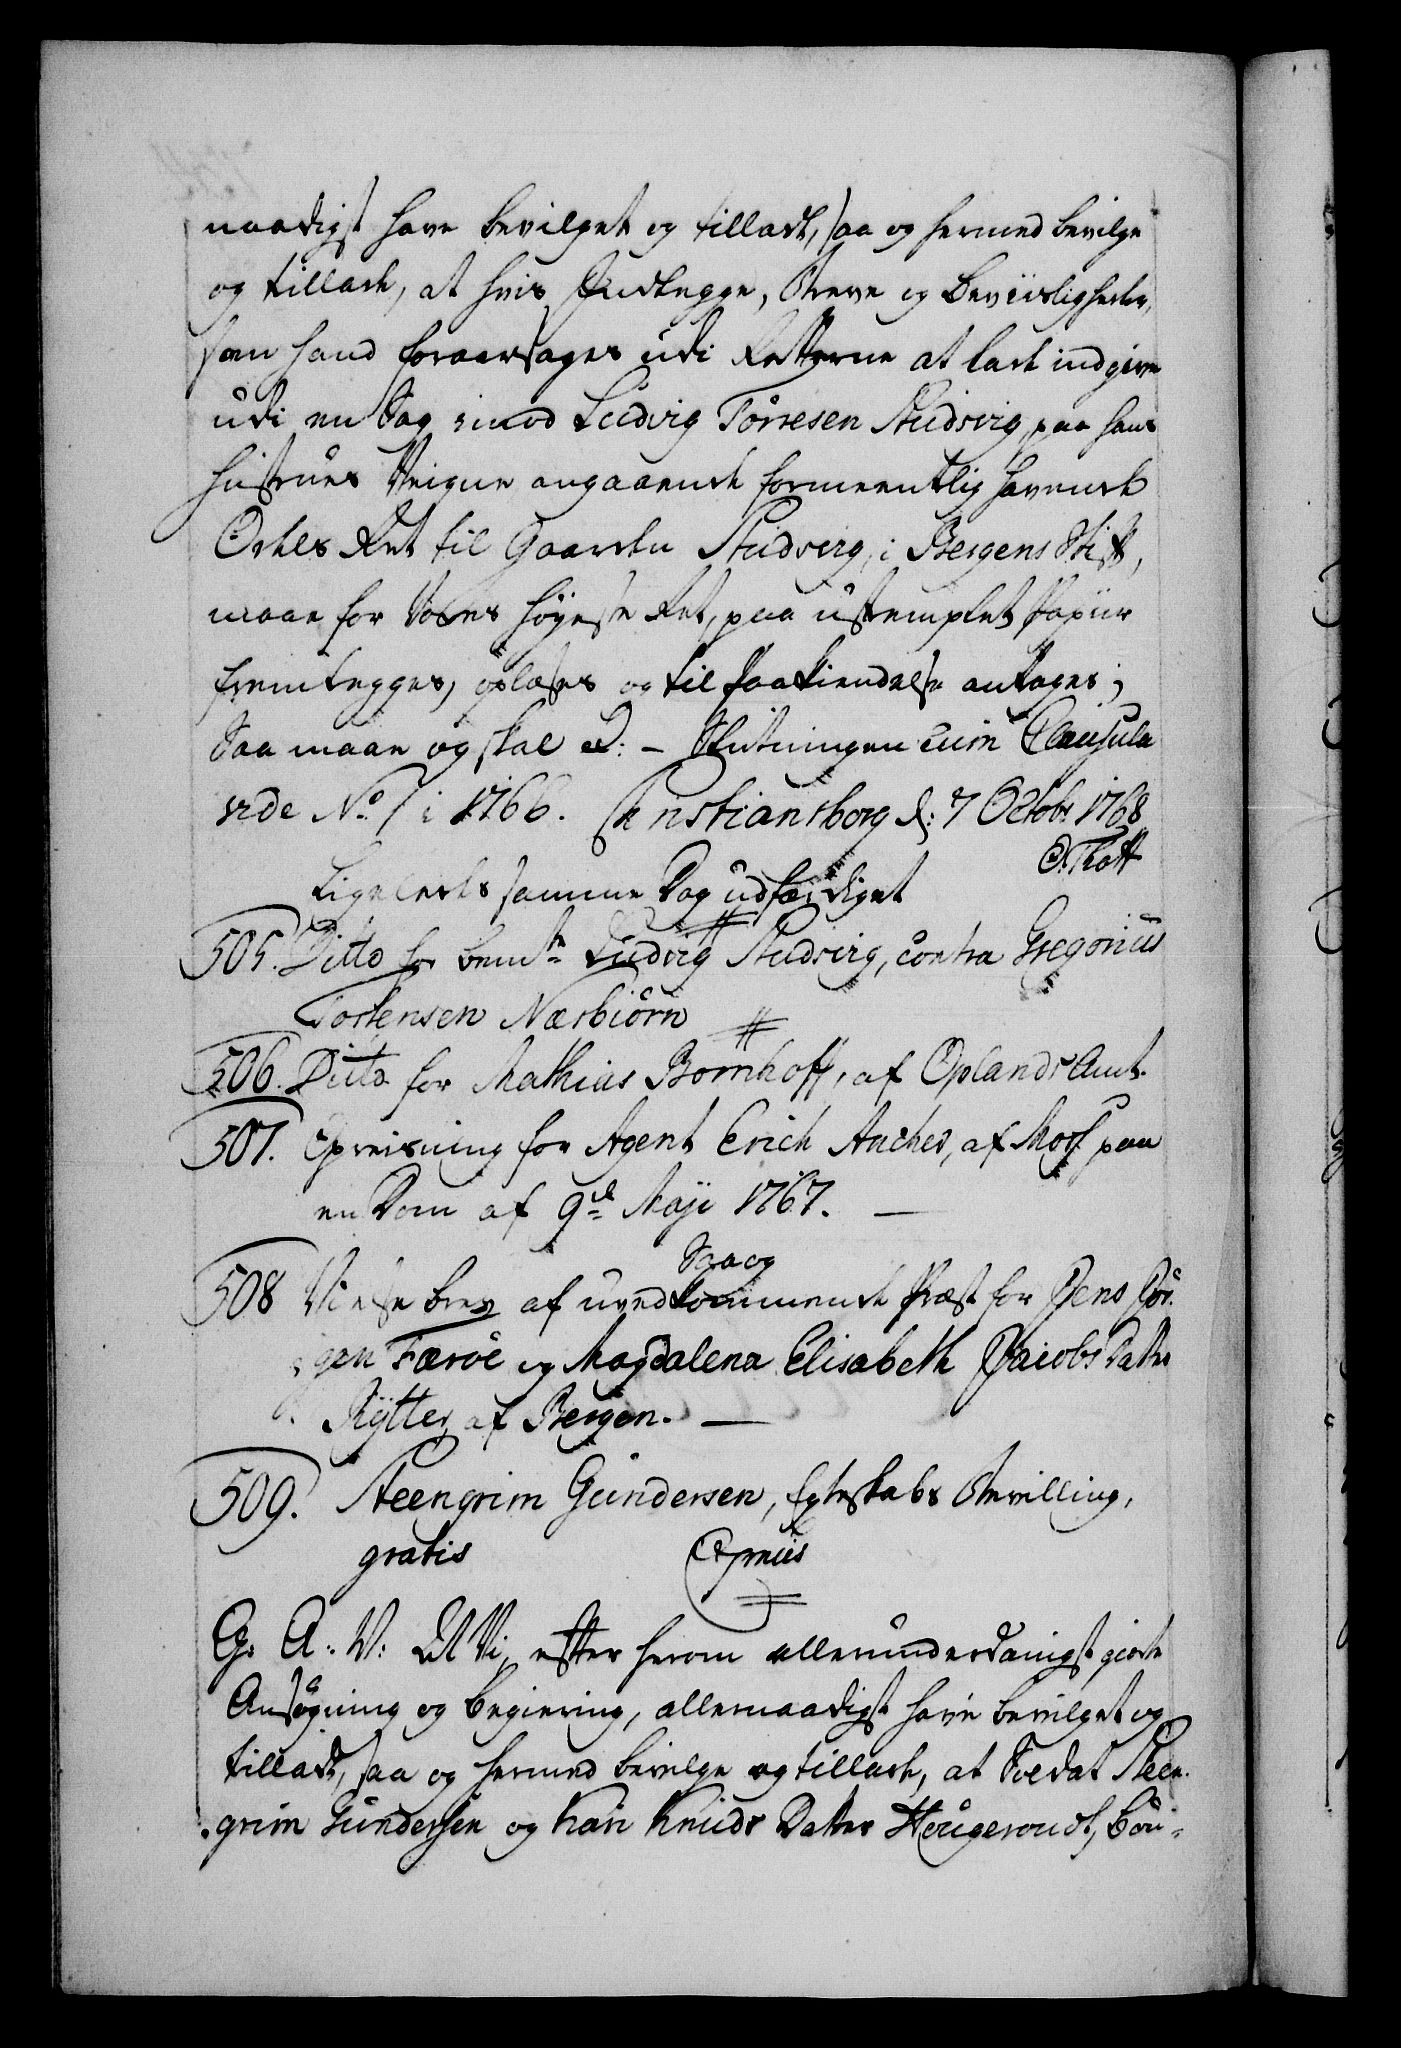 naadigst have bevilget og tilladt, saa og hermed bevilge
og tillade, at hvis Indlegge, Breve og Beviisligheder,
som hand foraarsages udi Retterne at lade indgive
udi en Sag imod Ludvig Torresen Studsvig, paa hans
Hustrues Veigne angaaende formeentlig havende
Odels Ret til Gaarden Studsvig, i Bergens Stift,
maae for Vores Høyeste Ret, paa ustemplet Papiir
fremlegges, oplæses og til Paakiendelse antages;
Saa maae og skal &: - Slutningen cum Clausula
vide No. 1 i 1766. Christiansborg d: 7 Octobr 1768
O. Thott
Ligeledes samme Dag udfærdiget
505. Ditto for bemte Ludvig Studsvig, contra Gregorius
Tostensen Næsbiörn
506. Ditto for Mathias Bornhoff, af Oplands Amt.
507. Opreisning for Agent Erich Ancher, af Moss paa
en Dom af 9de Maji 1767. —
508 Vielse brev af uvedkommende Præst for Jens Jør-
Saa og
gen Færöe og Magdalena Elisabeth Jacobs Datter
Rÿtter, af Bergen. —
509. Steengrim Gundersen, Egteskabs Bevilling,
gratis
G. A: V: At Vi, efter herom allerunderdanigst giorte
Ansøgning og begiering, allernaadigst have bevilget og
tilladt, saa og hermed bevilge og tillade, at Soldat Steen-
grim Gundersen og Kari Knuds Datter Hougeroudt, bou-